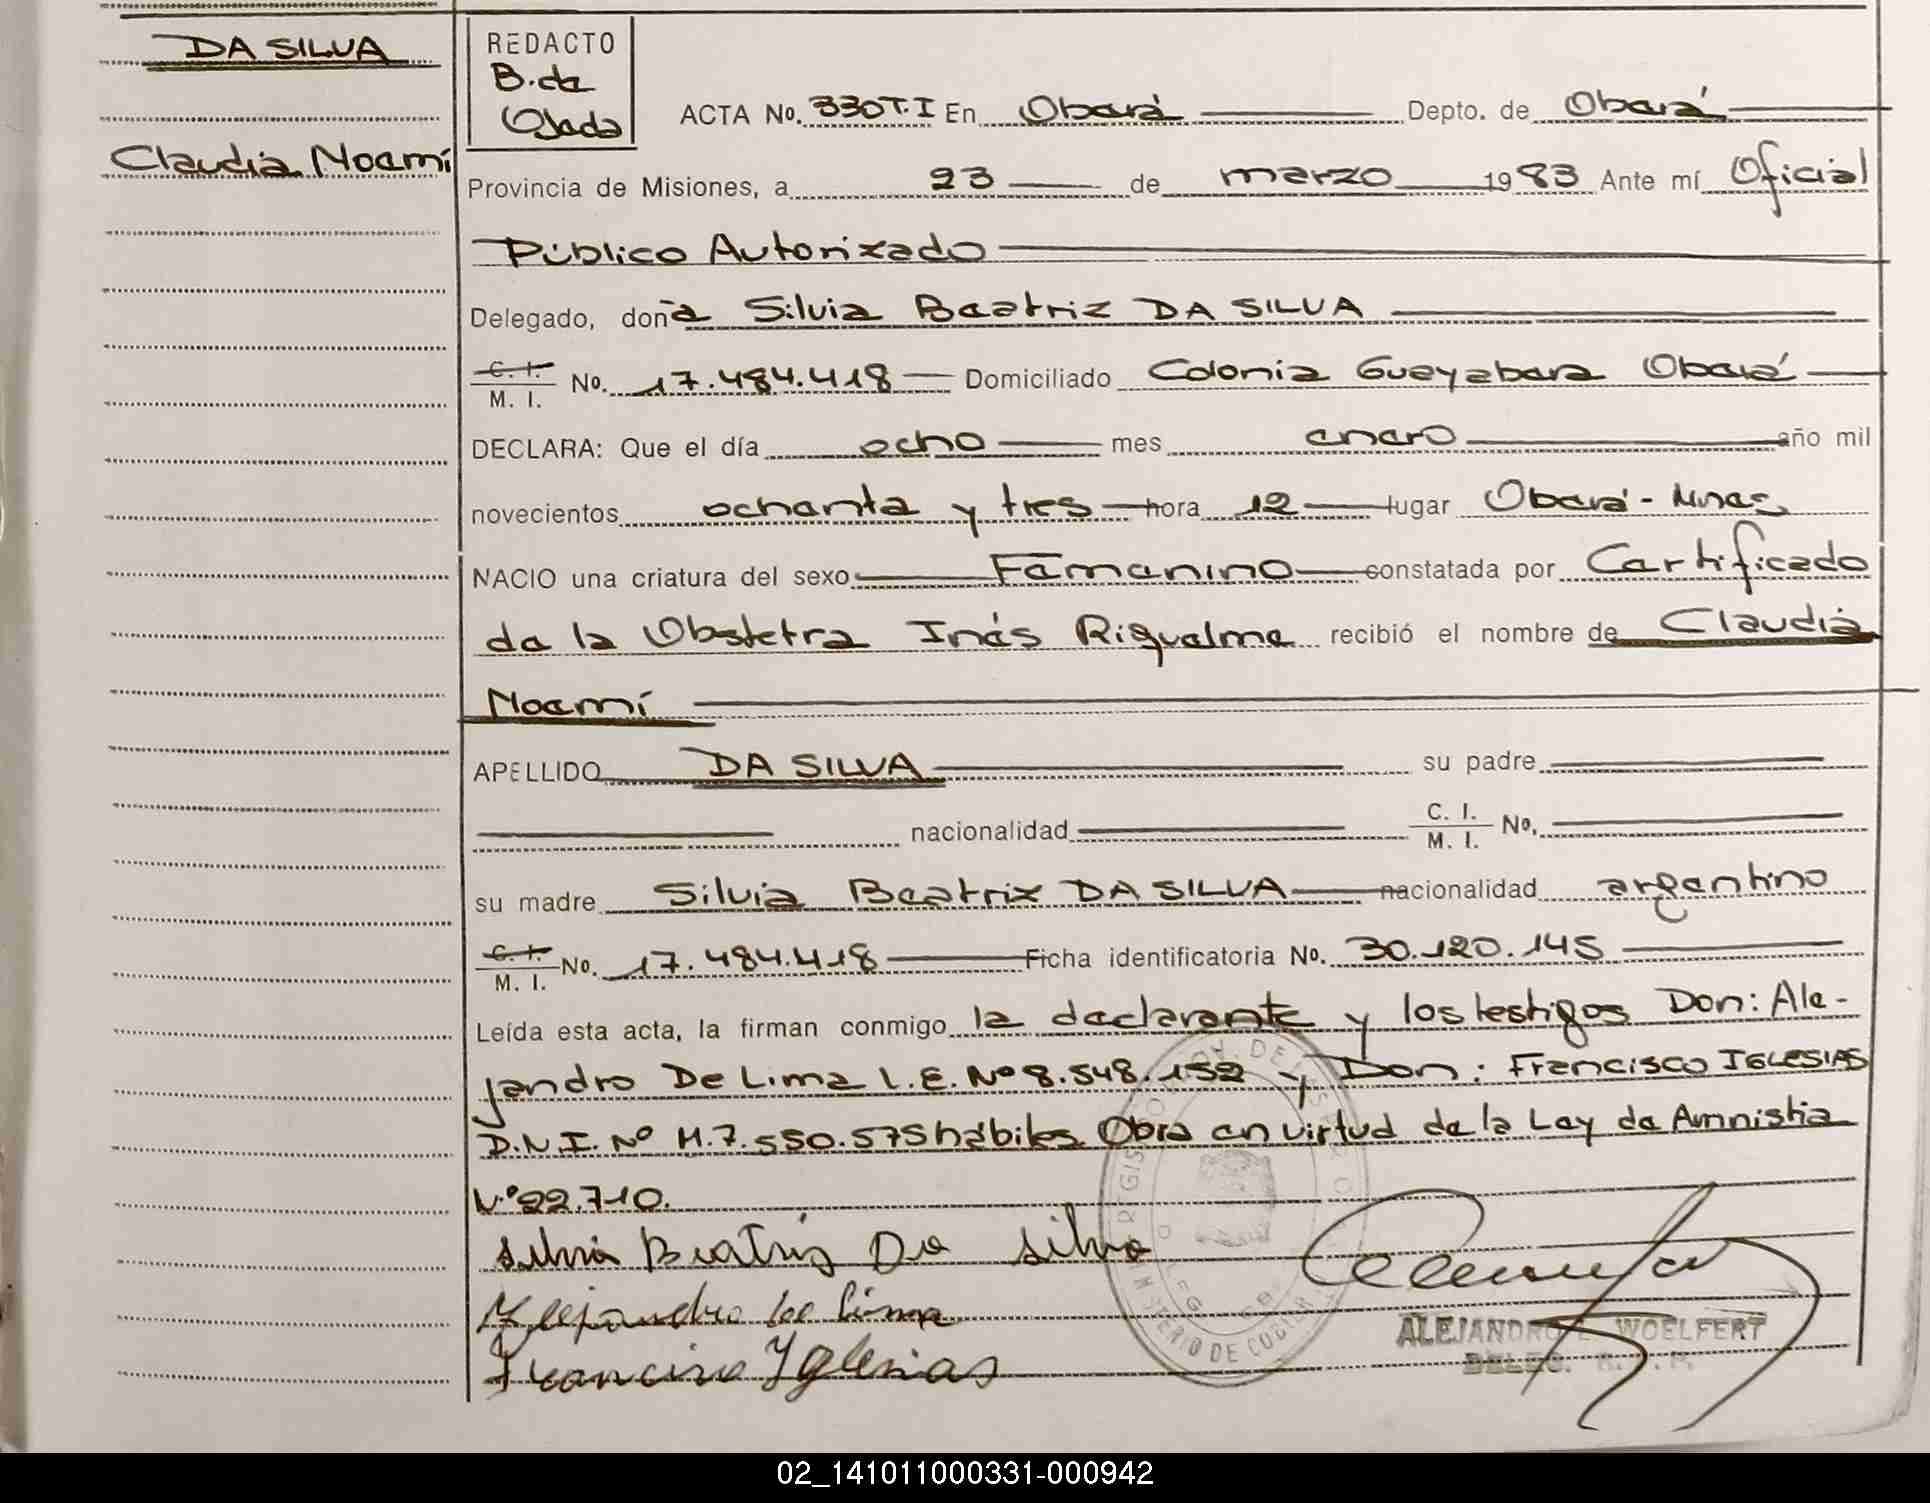 DA SILVA
Claudia Noemí
REDACTO
B. de
Ojeda
ACTA No. 330 T.I En Oberá Depto. de Oberá
Provincia de Misiones, a 23 de marzo 1983 Ante mí Oficial
Público Autorizado
Delegado, doña Silvia Beatriz DA SILVA
C. I. / M. I. No. 17.484.418 Domiciliado Colonia Guayabera Oberá
DECLARA: Que el día ocho mes enero año mil
novecientos ochenta y tres hora 12 lugar Oberá - Mnes
NACIO una criatura del sexo Femenino constatada por Certificado
de la Obstetra Inés Riquelme recibió el nombre de Claudia
Noemí
APELLIDO DA SILVA su padre
nacionalidad C. I. / M. I. No.
su madre Silvia Beatriz DA SILVA nacionalidad argentino
C. I. / M. I. No. 17.484.418 Ficha identificatoria No. 30.120.145
Leída esta acta, la firman conmigo la declarante y los testigos Don: Ale-
jandro De Lima L.E. Nº 8.548.152 y Don: Francisco IGLESIAS
D.N.I. Nº M.7.550.575 hábiles Obra en virtud de la Ley de Amnistia
Nº 22.710.
Silvia Beatriz Da Silva
Alejandro de Lima
Francisco Yglesias
ALEJANDRO E. WOELFERT
DELEG. R. . P.
02_141011000331-000942